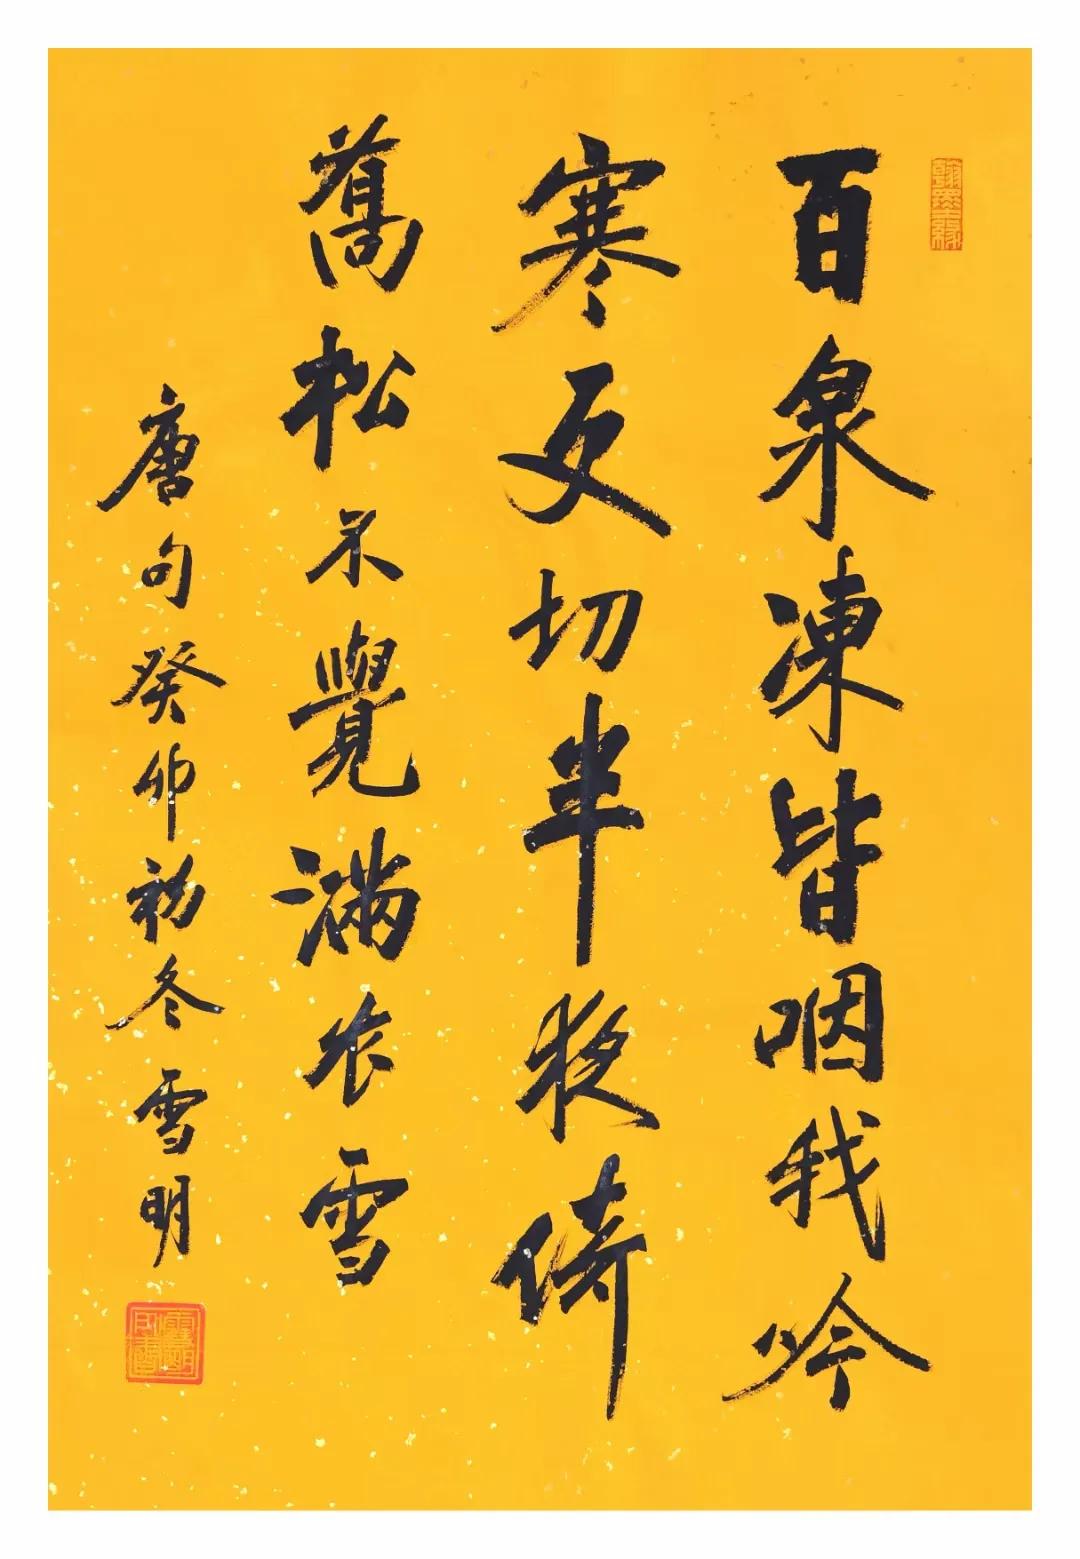 翰墨缘
百泉凍皆咽我吟
寒更切半夜倚
舊松不覺滿衣雪
唐句癸卯初冬雪明